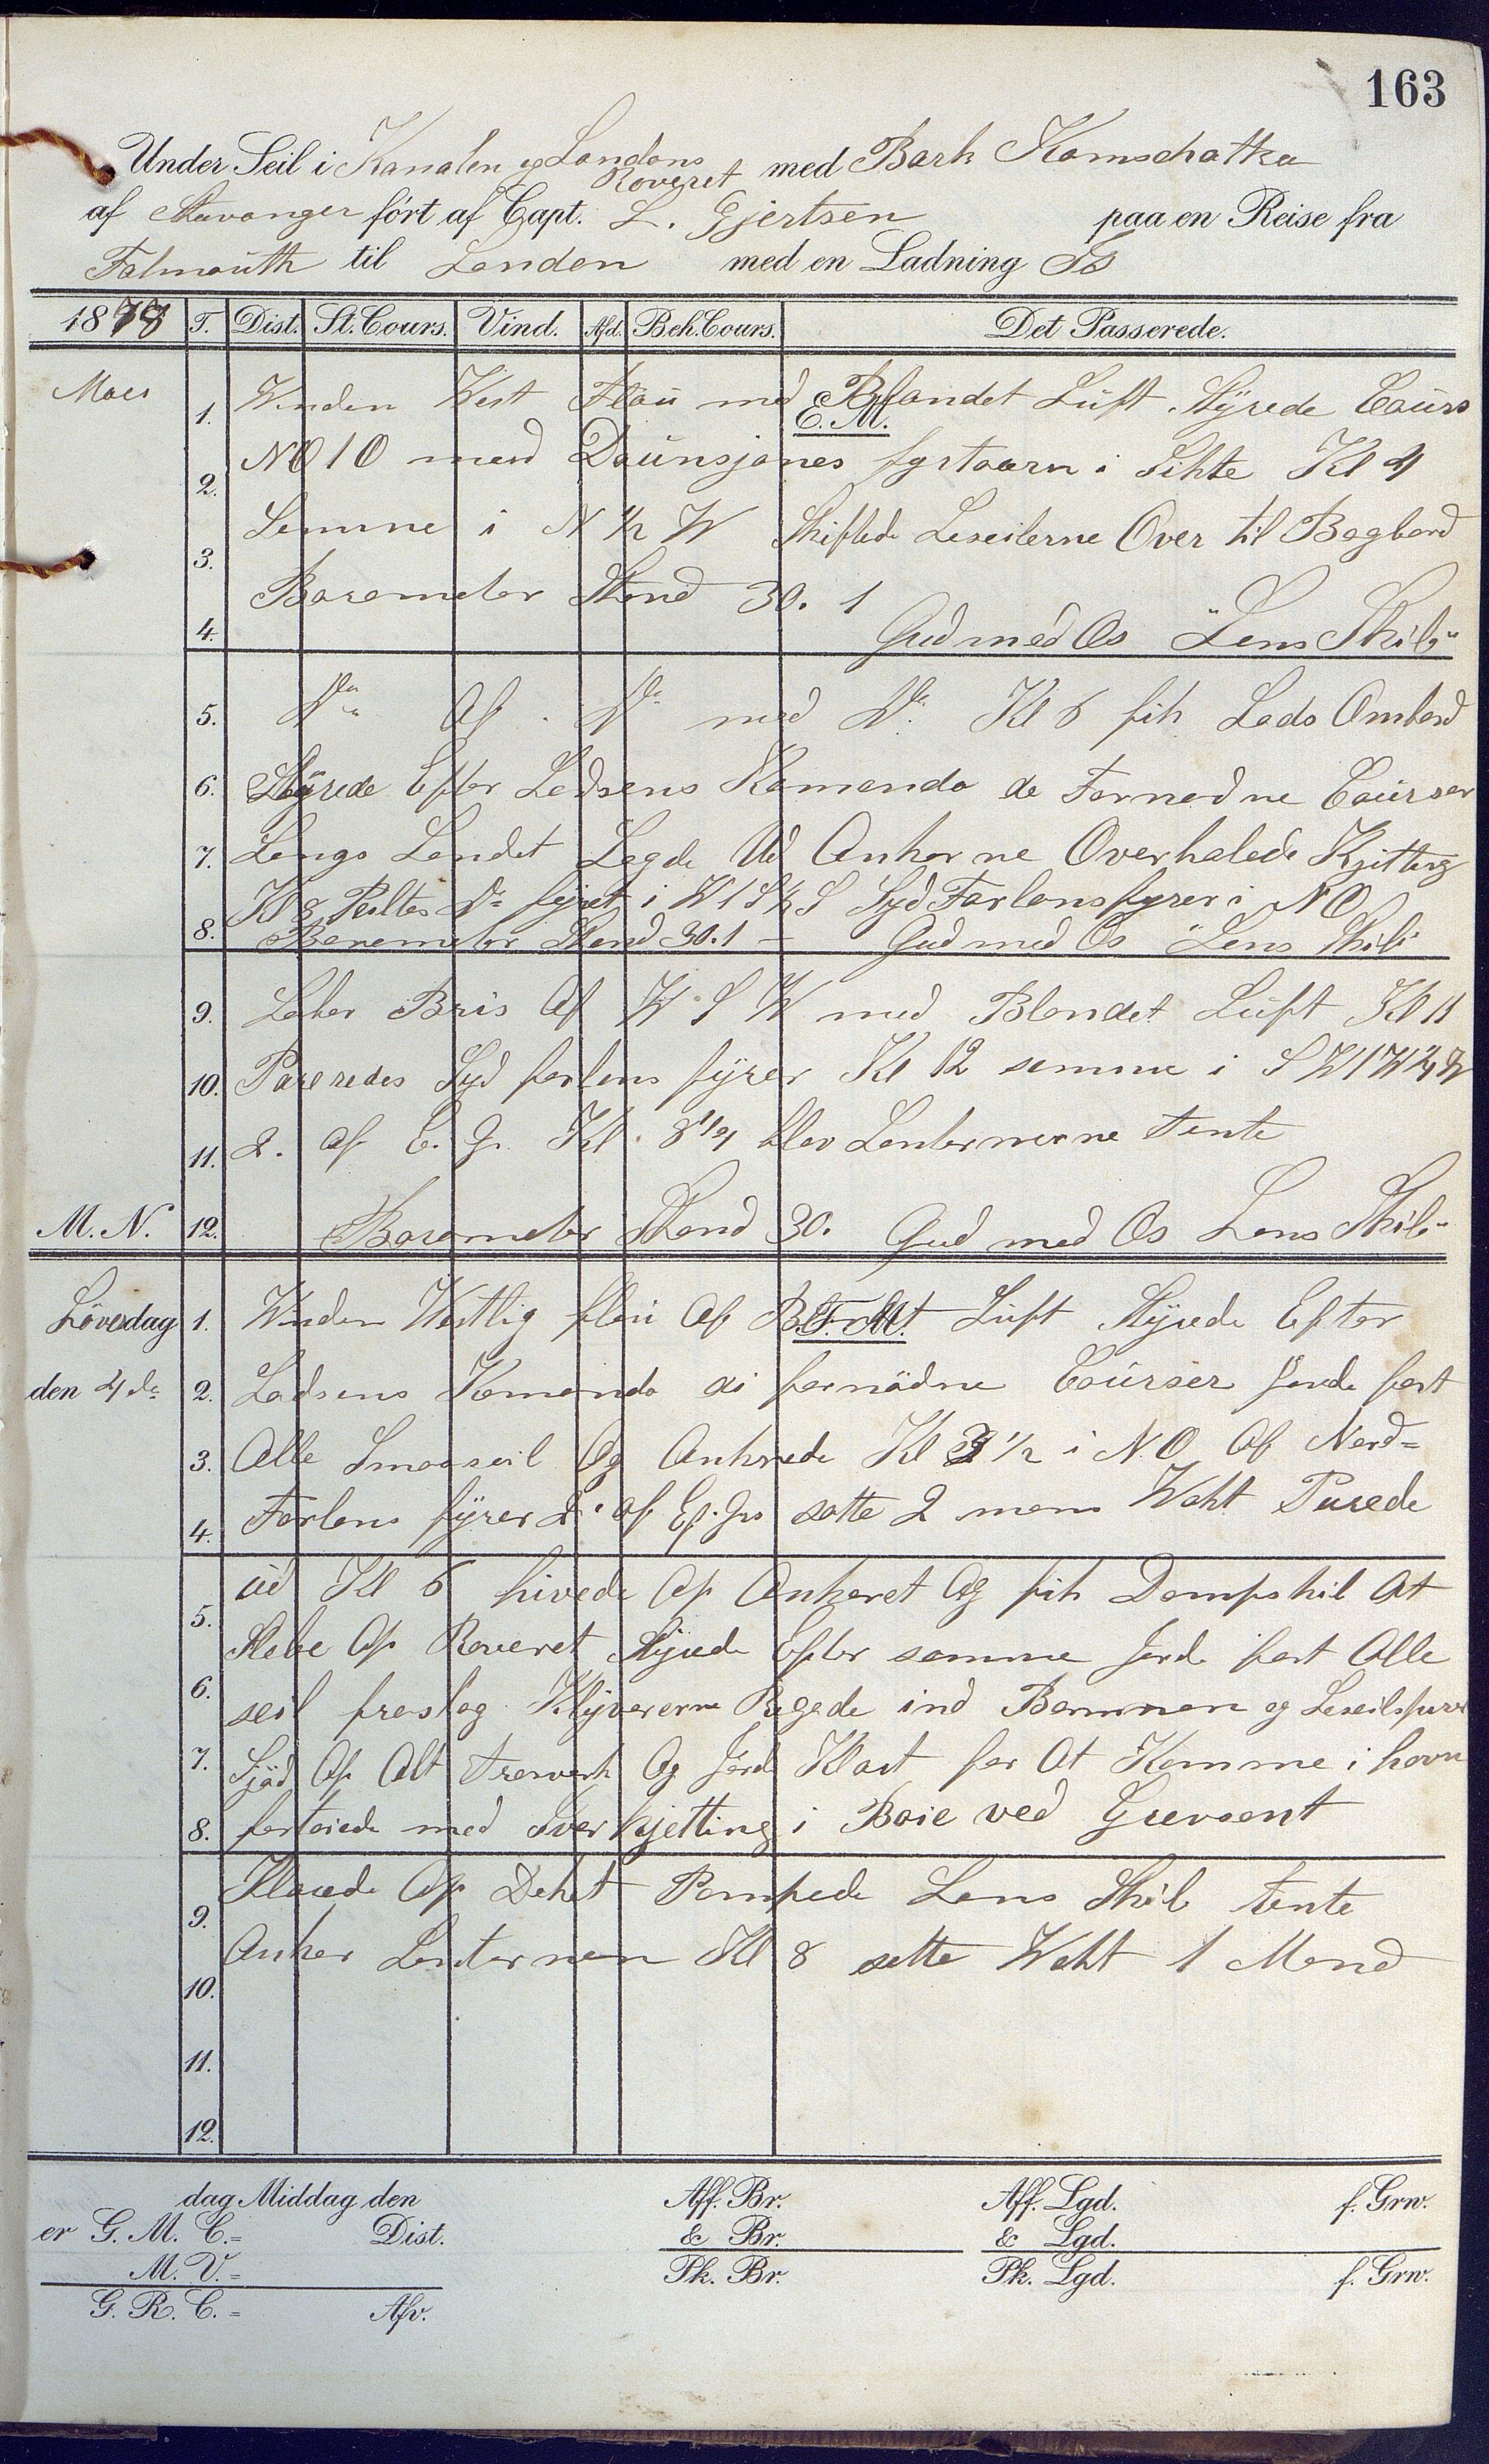 163
Under Seil i Kanalen og Londons Roveret med Bark Kamschatka
af Stavanger ført af Capt. L. Gjertsen paa en Reise fra
Falmouth til London med en Ladning
1878 T. Dist. St. Cours. Vind. Afd. Beh. Cours. Det Passerede.
Maes 1. Vinden West Flau med Blandet Luft Styrede Cours
E. M.
2. NO 1 O med Daunsjones fyrtaarn i Sihte Kl 4
3. Samme i N 1/2 W Skiftede Leseilerne Over til Bagbord
4. Barometer Stand 30. 1
Gud med Os "Lens Skib"
5. Do Af Do med Do Kl 6 fik Lods Ombord
6. Styrede Efter Lodsens Komando de Fornødne Courser
7. Langs Landet Lagde Ud Ankerne Overhalede Kjitting
Kl 8 Peiltes Do fyret i W 1 S 1/2 S Syd Forlans fyrer i NO
8. Barometer Stand 30.1 — Gud med Os "Lens Skib"
9. Laber Bris Af W S W med Blandet Luft Kl 11
10. Paseredes Syd forlans fyrer Kl 12 samme i S W 1 W 1/4 W
11. 2. af E. Gr. Kl. 8 1/4 blev Lanternerne Tente
M. N. 12. Barometer Stand 30. Gud med Os Lens Skib"
Löverdag 1. Vinden Westlig flau Af Luft Styrede Efter
F. M.
den 4 de 2. Lodsens Komando di fornødne Courser Jorde fast
3. Alle Smaaseil Og Ankrede Kl 3 1/2 i NO Af Nord=
4. Forlans fyrer 2. af satte 2 mans Waht Purede
5. ud Kl 6 hivede Op Ankeret Og fik Dampskib At
Slebe Op Roveret Styrede Efter samme Jorde fast Alle
6. seil fraslog Klyvererne Rigede ind Bommen og
7. Sjød Op Alt Træverk Og Jorde Klart for At Komme i havn
8. fortøiede med Sver Kjetting i Boie ved Grevsent
9. Klarede Op Deket Pompede Lens Skib tente
Anker Lanternen Kl 8 satte Waht 1 Mand
10.
11.
12.
dag Middag den Aff. Br. Aff. Lgd. f. Grw.
er G. M. C.= Dist. & Br. & Lgd.
M. V.= Pk. Br. Pk. Lgd. f. Grw.
G. R. C.= Afv.